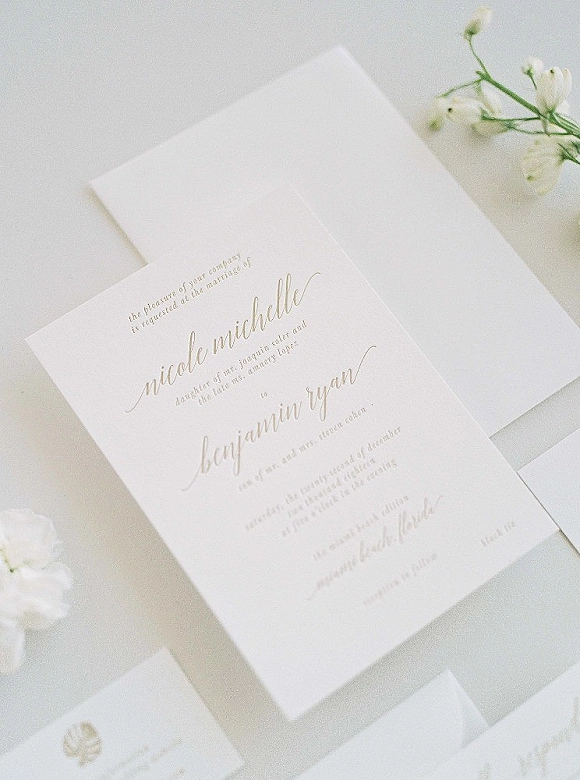 the pleasure of your company
is requested at the marriage of
nicole michelle
daughter of mr. joaquin soler and
the late ms. amaury lopez
to
benjamin ryan
son of mr. and mrs. steven cohen
saturday, the twenty second of december
two thousand eighteen
at five o'clock in the evening
the miami beach edition
miami beach, florida
reception to follow
black tie